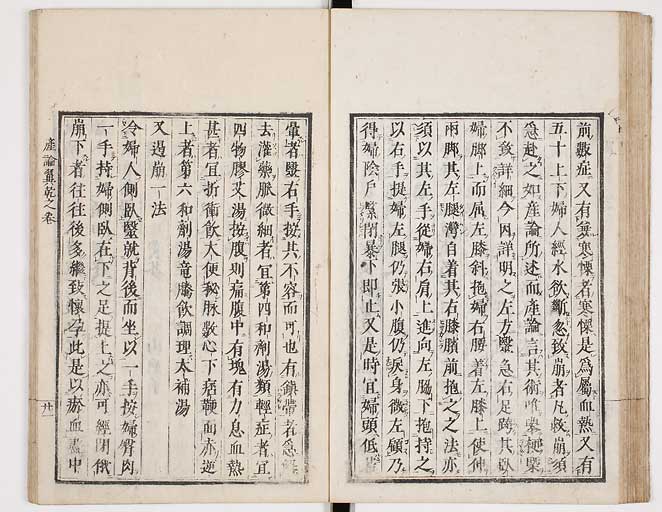 前嚴症又有兼寒慄者寒慄是爲屬血熱又有
五十上下婦人經水欲斷忽致崩者凡救崩須
急赴之如産論所述而産論言其術唯擧梗槩
不致詳細今因詳明之左方毉急右足跨其臥
婦脚上而屈左膝斜抱婦右腰着左膝上使伸
兩脚其左腿灣自着其右膝臏前抱之之法亦
須以其左手從婦右肩上進向左腋下抱持之
以右手提婦左腿仍張小腹仍戾身微左顧乃
得婦陰戶緊閉暴下即止又是時宜婦頭低
暈者毉右手按其不容而可也有鎮帶者急
去灌藥脈微細者宜第四和劑湯類輕症者宜
四物膠艾湯按腹則痛腹中有塊有力息血熱
甚者宜折衝飲大便秘脉數心下痞鞕面赤逆
上者第六和劑湯竜騰飲調理大補湯
又遏崩一法
令婦人側臥毉就背後而坐以一手按婦臀肉
一手持婦側臥在下之足提上之亦可經閉俄
崩下者往往後多繼致懷孕此是以瘀血盡中
産論翼乾之卷
廿一